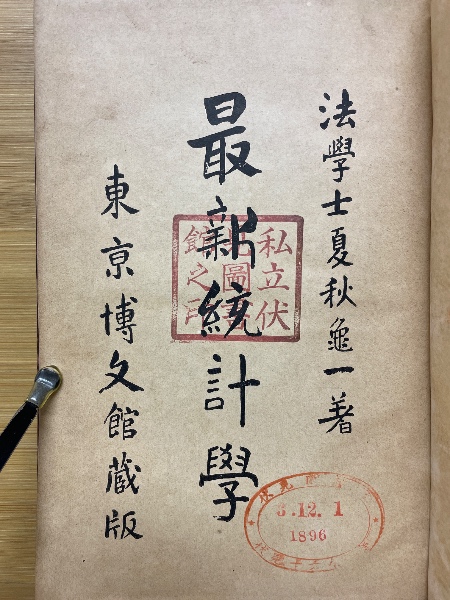 法學士夏秋龜一著
最新統計學
東京博文館蔵版
私立伏
見圖書
館之印
.12. 1
1896